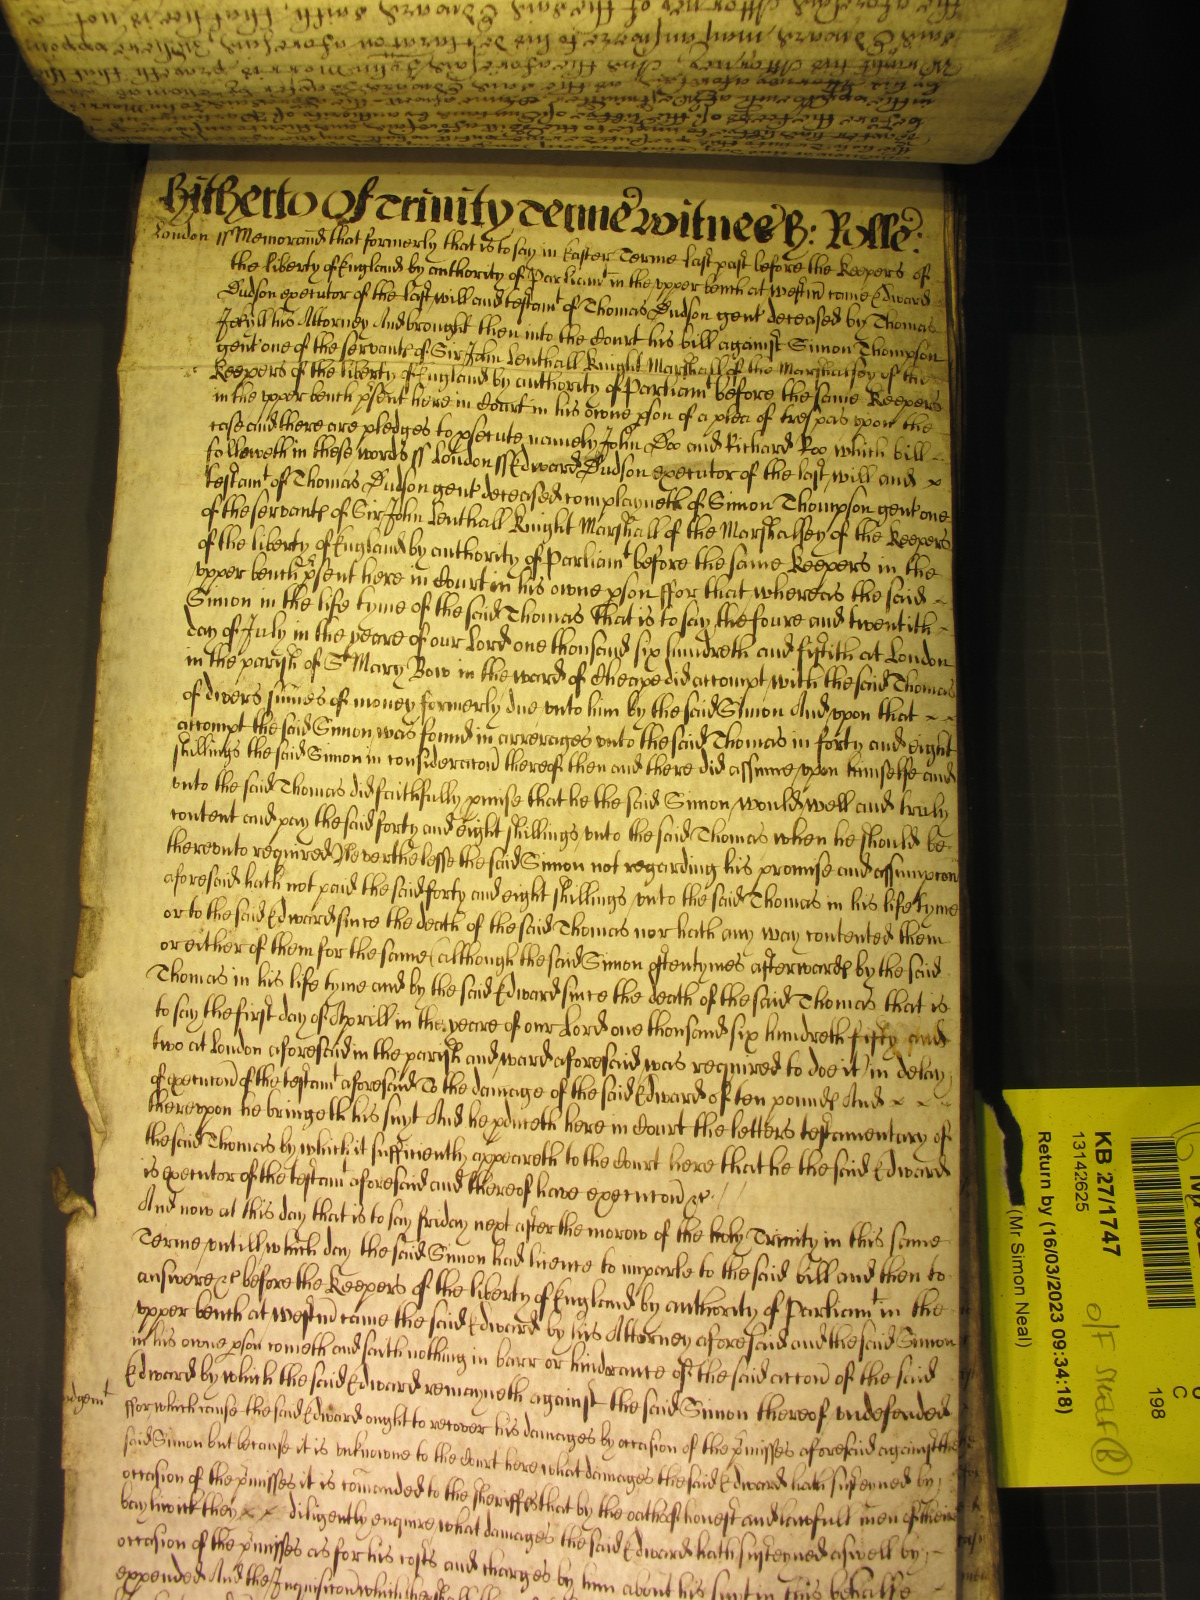 Hitherto Of Trinity Terme Witnes H: Rolle:
London ss Memorand that formerly that is to say in Easter Terme last past before the Keepers of
the liberty of England by authority of Parliamt in the vpper bench at Westm came Edward
Dudson executor of the last will and testamt of Thomas Dudson gent deceased by Thomas
Jekyll his Attorney And brought then into the Court his bill against Simon Thompson
gent one of the servants of Sir John Lenthall Knight Marshall of the Marshalsey of the
Keepers of the liberty of England by authority of Parliamt before the same Keepers
in the vpper bench psent here in Court in his owne pson of a plea of trespas vpon the
case and there are pledges to psecute namely John Doo and Richard Roo which bill
followeth in these words ss London ss Edward Dudson executor of the last will and x
testamt of Thomas Dudson gent deceased complayneth of Simon Thompson gent one
of the servants of Sir John Lenthall Knight Marshall of the Marshalsey of the Keepers
of the liberty of England by authority of Parliamt before the same Keepers in the
vpper bench psent here in Court in his owne pson ffor that whereas the said
Simon in the life tyme of the said Thomas that is to say the foure and twentith
day of July in the yeare of our Lord one thousand six hundreth and fiftith at London
in the parish of St Mary Bow in the ward of Cheape did accompt with the said Thomas
of divers sumes of money formerly due vnto him by the said Simon And vpon that x x
accompt the said Simon was found in arrerages vnto the said Thomas in forty and eight
shillings the said Simon in consideracon thereof then and there did assume vpon himselfe and
vnto the said Thomas did faithfully pmise that he the said Simon would well and truly
content and pay the said forty and eight shillings vnto the said Thomas when he should be
therevnto required Neverthelesse the said Simon not regarding his promise and assumpcon
aforesaid hath not paid the said forty and eight shillings vnto the said Thomas in his life tyme
or to the said Edward since the death of the said Thomas nor hath any way contented them
or either of them for the same (although the said Simon oftentymes afterwards by the said
Thomas in his life tyme and by the said Edward since the death of the said Thomas that is
to say the first day of Aprill in the yeare of our Lord one thousand six hundreth fifty and
two at London aforesaid in the parish and ward aforesaid was required to doe it) in delay
of execucon of the testamt aforesaid To the damage of the said Edward of ten pounds And x x x
therevpon he bringeth his suyt And he pduceth here in Court the letters testamentary of
the said Thomas by which it sufficiently appeareth to the Court here that he the said Edward
is executor of the testamt aforesaid and thereof have execucon &c
And now at this day that is to say friday next after the morow of the holy Trinity in this same
Terme vntill which day the said Simon had licence to imparle to the said bill and then to
answere &c before the Keepers of the liberty of England by authority of Parliamt in the
vpper bench at Westm came the said Edward by his Attorney aforesaid and the said Simon
in his owne pson cometh and saith nothing in barr or hindrance of the said accon of the said
Edward by which the said Edward remayneth against the said Simon thereof vndefended
ffor which cause the said Edward ought to recover his damages by occasion of the pmisses aforesaid against the
said Simon but because it is vnknowne to the Court here what damages the said Edward hath susteyned by
occasion of the pmisses it is comanded to the sheriffes that by the oaths of honest and lawfull men of their
baylywick they x x diligently enquire what damages the said Edward hath susteyned aswell by
occasion of the pmisses as for his costs and charges by him about his suyt in this behalfe
expended And the Inquisicon which
KB 27/1747
13142625
Return by (16/03/2023 09:34:18)
(Mr Simon Neal)
198
C